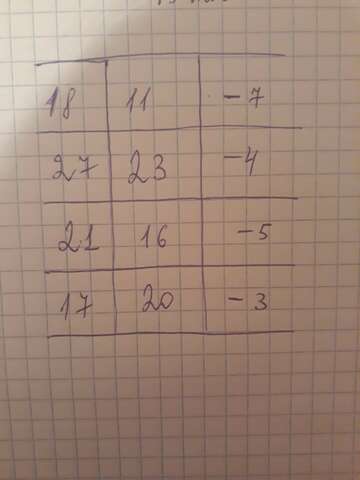 18 11 -7
27 23 -4
21 16 -5
17 20 -3